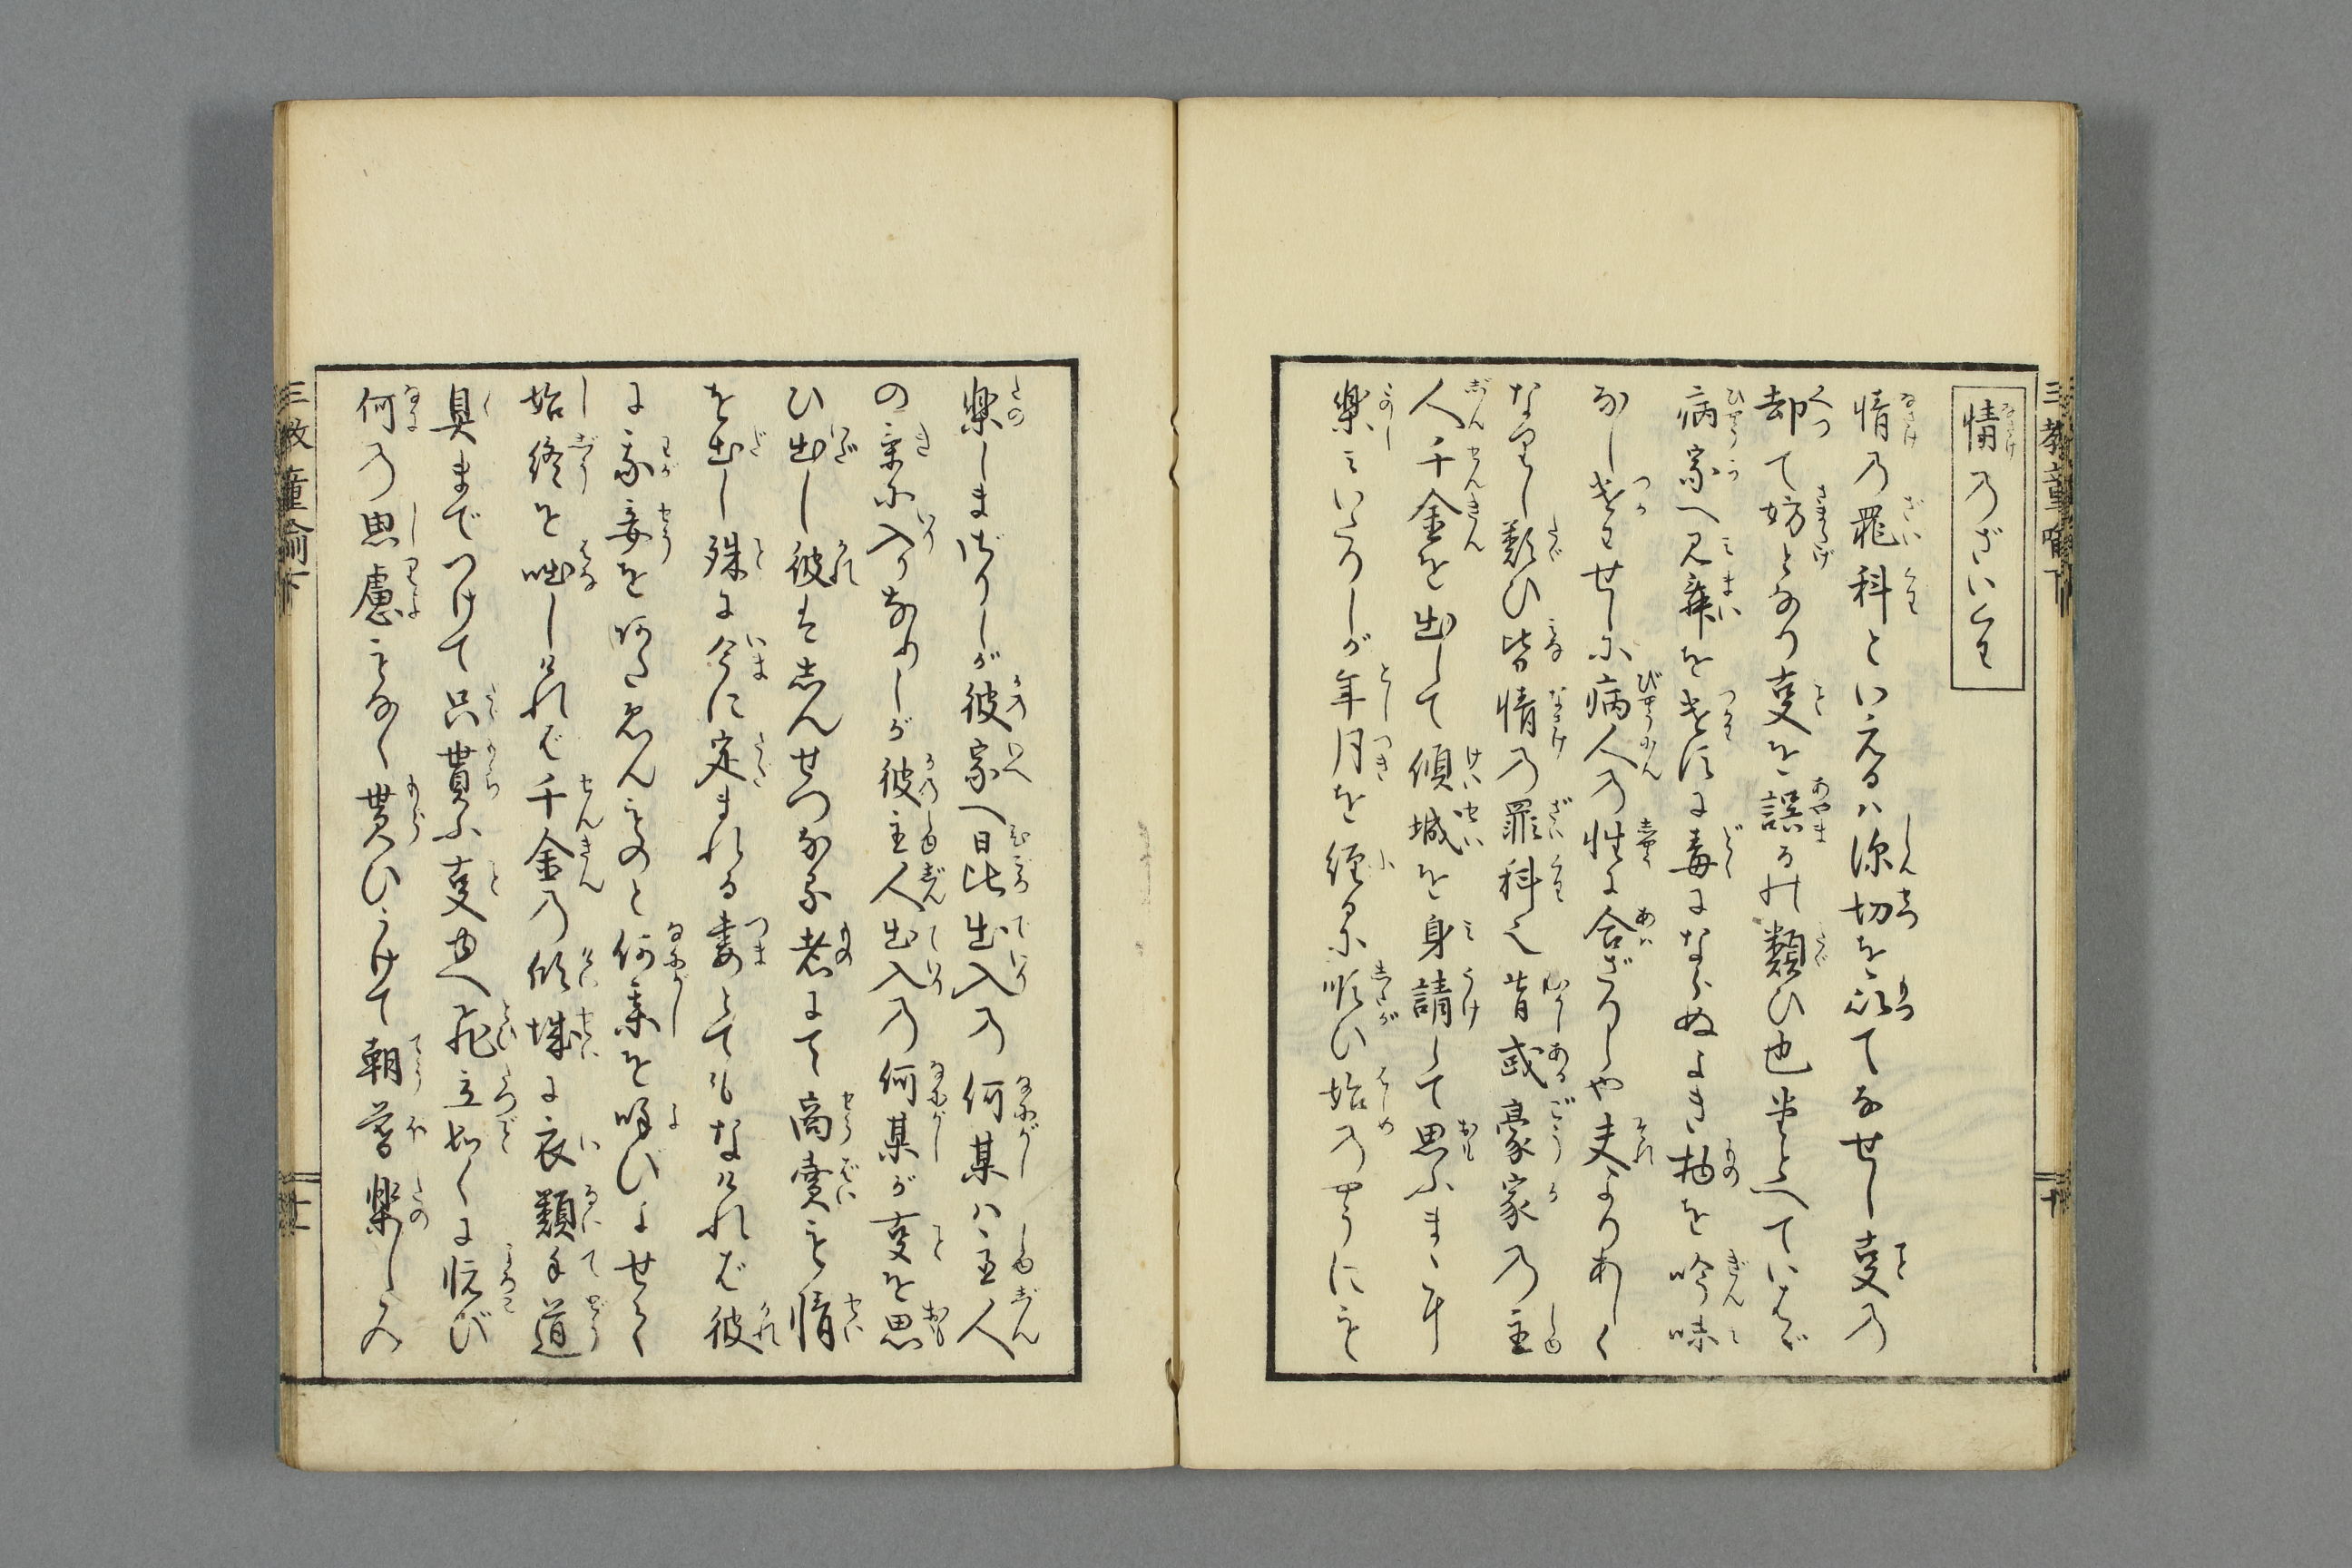 三教童喩下
十
情のざいくわ
情の罪科といえるハ深切を以てなせし事の
却て妨となり事を誤るの類ひ也たとへていはゞ
病家へ見舞を遣すに毒にならぬよき物を吟味
なし遣わせしに病人の性に合ざりしや夫よりあしく
なりし類ひ皆情の罪科也昔或豪家の主
人千金を出して傾城を身請して思ふまゝに
楽ミいたりしが年月を経るに順ひ始のやうにも
楽しまざりしが彼家へ日比出入の何某ハ主人
の気に入りなりしが彼主人出入の何某が事を思
ひ出し彼はしんせつなる者にて商売も情
を出し殊に今に定まれる妻とてもなければ彼
に我妾を
あたえんものと何某を呼びよせて
始終を咄しければ千金の傾城に衣類手道
具までつけて只貰ふ事ゆへ飛立如くに悦び
何の思慮もなく貰ひうけて朝暮楽しみ
三教童喩下
十一